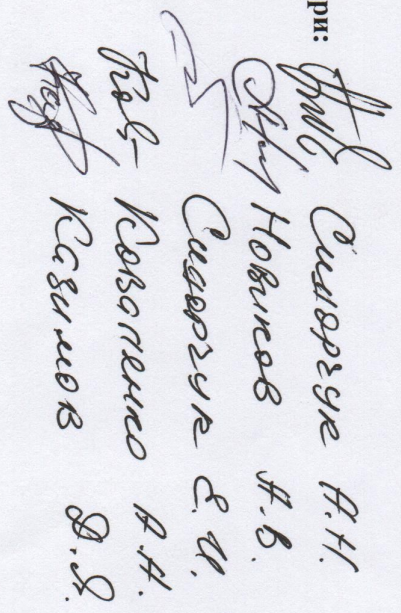 ри:
Сидорчук А.Н.
Новиков А.В.
Сидорчук Е.И.
Коваленко А.Н.
Казимов Д.Я.